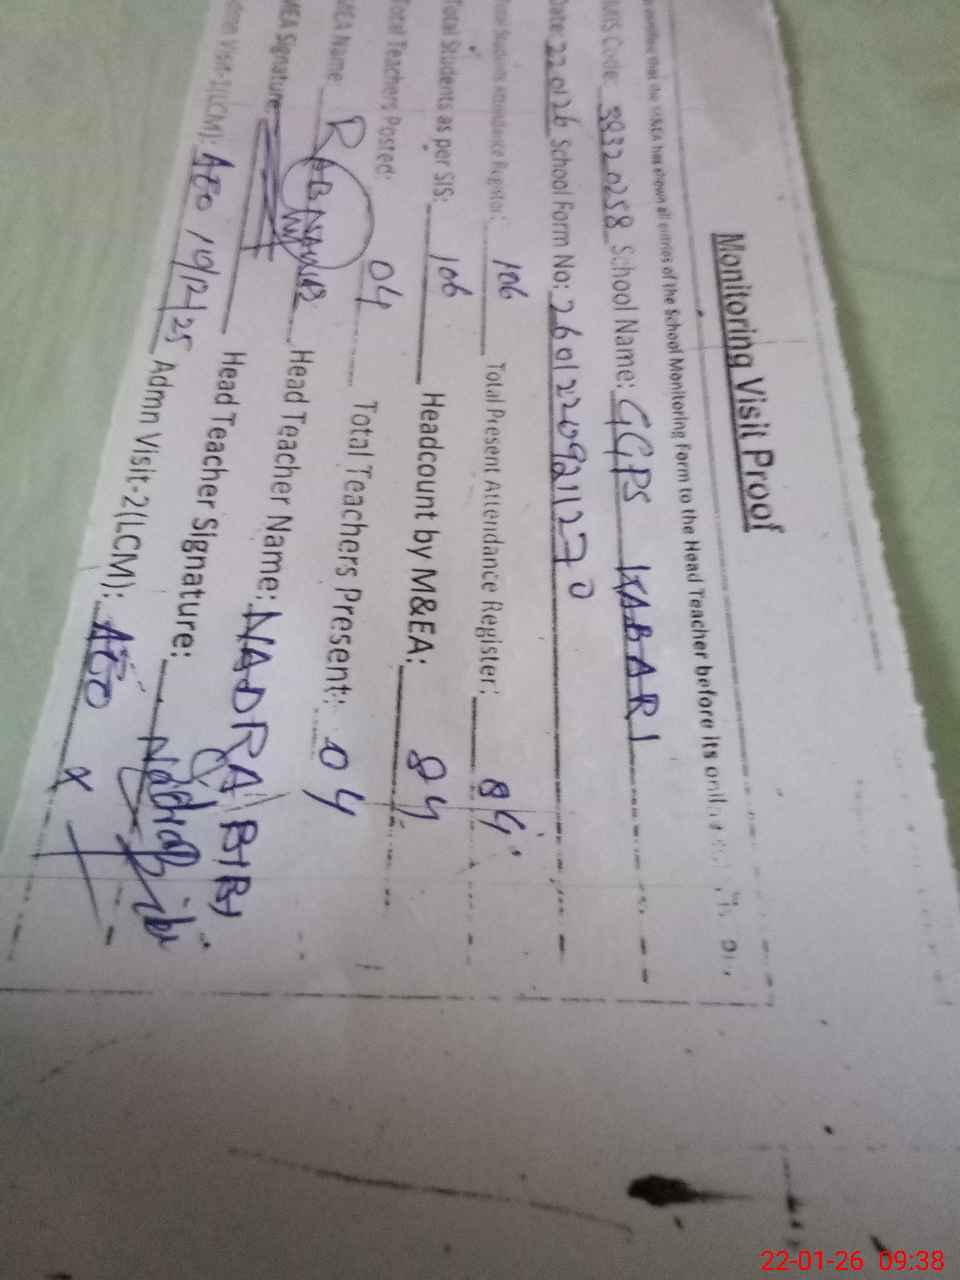 Monitoring Visit Proof
that the M&EA has shown all entries of the School Monitoring Form to the Head Teacher before its
Code: 38320258 School Name: GGPS KABARI
Date: 220126 School Form No: 2601220921127 0
Total Student Attendance Register: 106 Total Present Attendance Register: 84
Total Students as per SIS: 106 Headcount by M&EA: 84
Total Teachers Posted: 04 Total Teachers Present: 04
MEA Name: RAB NAWAB Head Teacher Name: NADRA BIBI
MEA Signature: Head Teacher Signature: Nadra Bibi
Visit-1(LCM): AEO 10/12/25 Admn Visit-2(LCM): AEO X
22-01-26 09:38